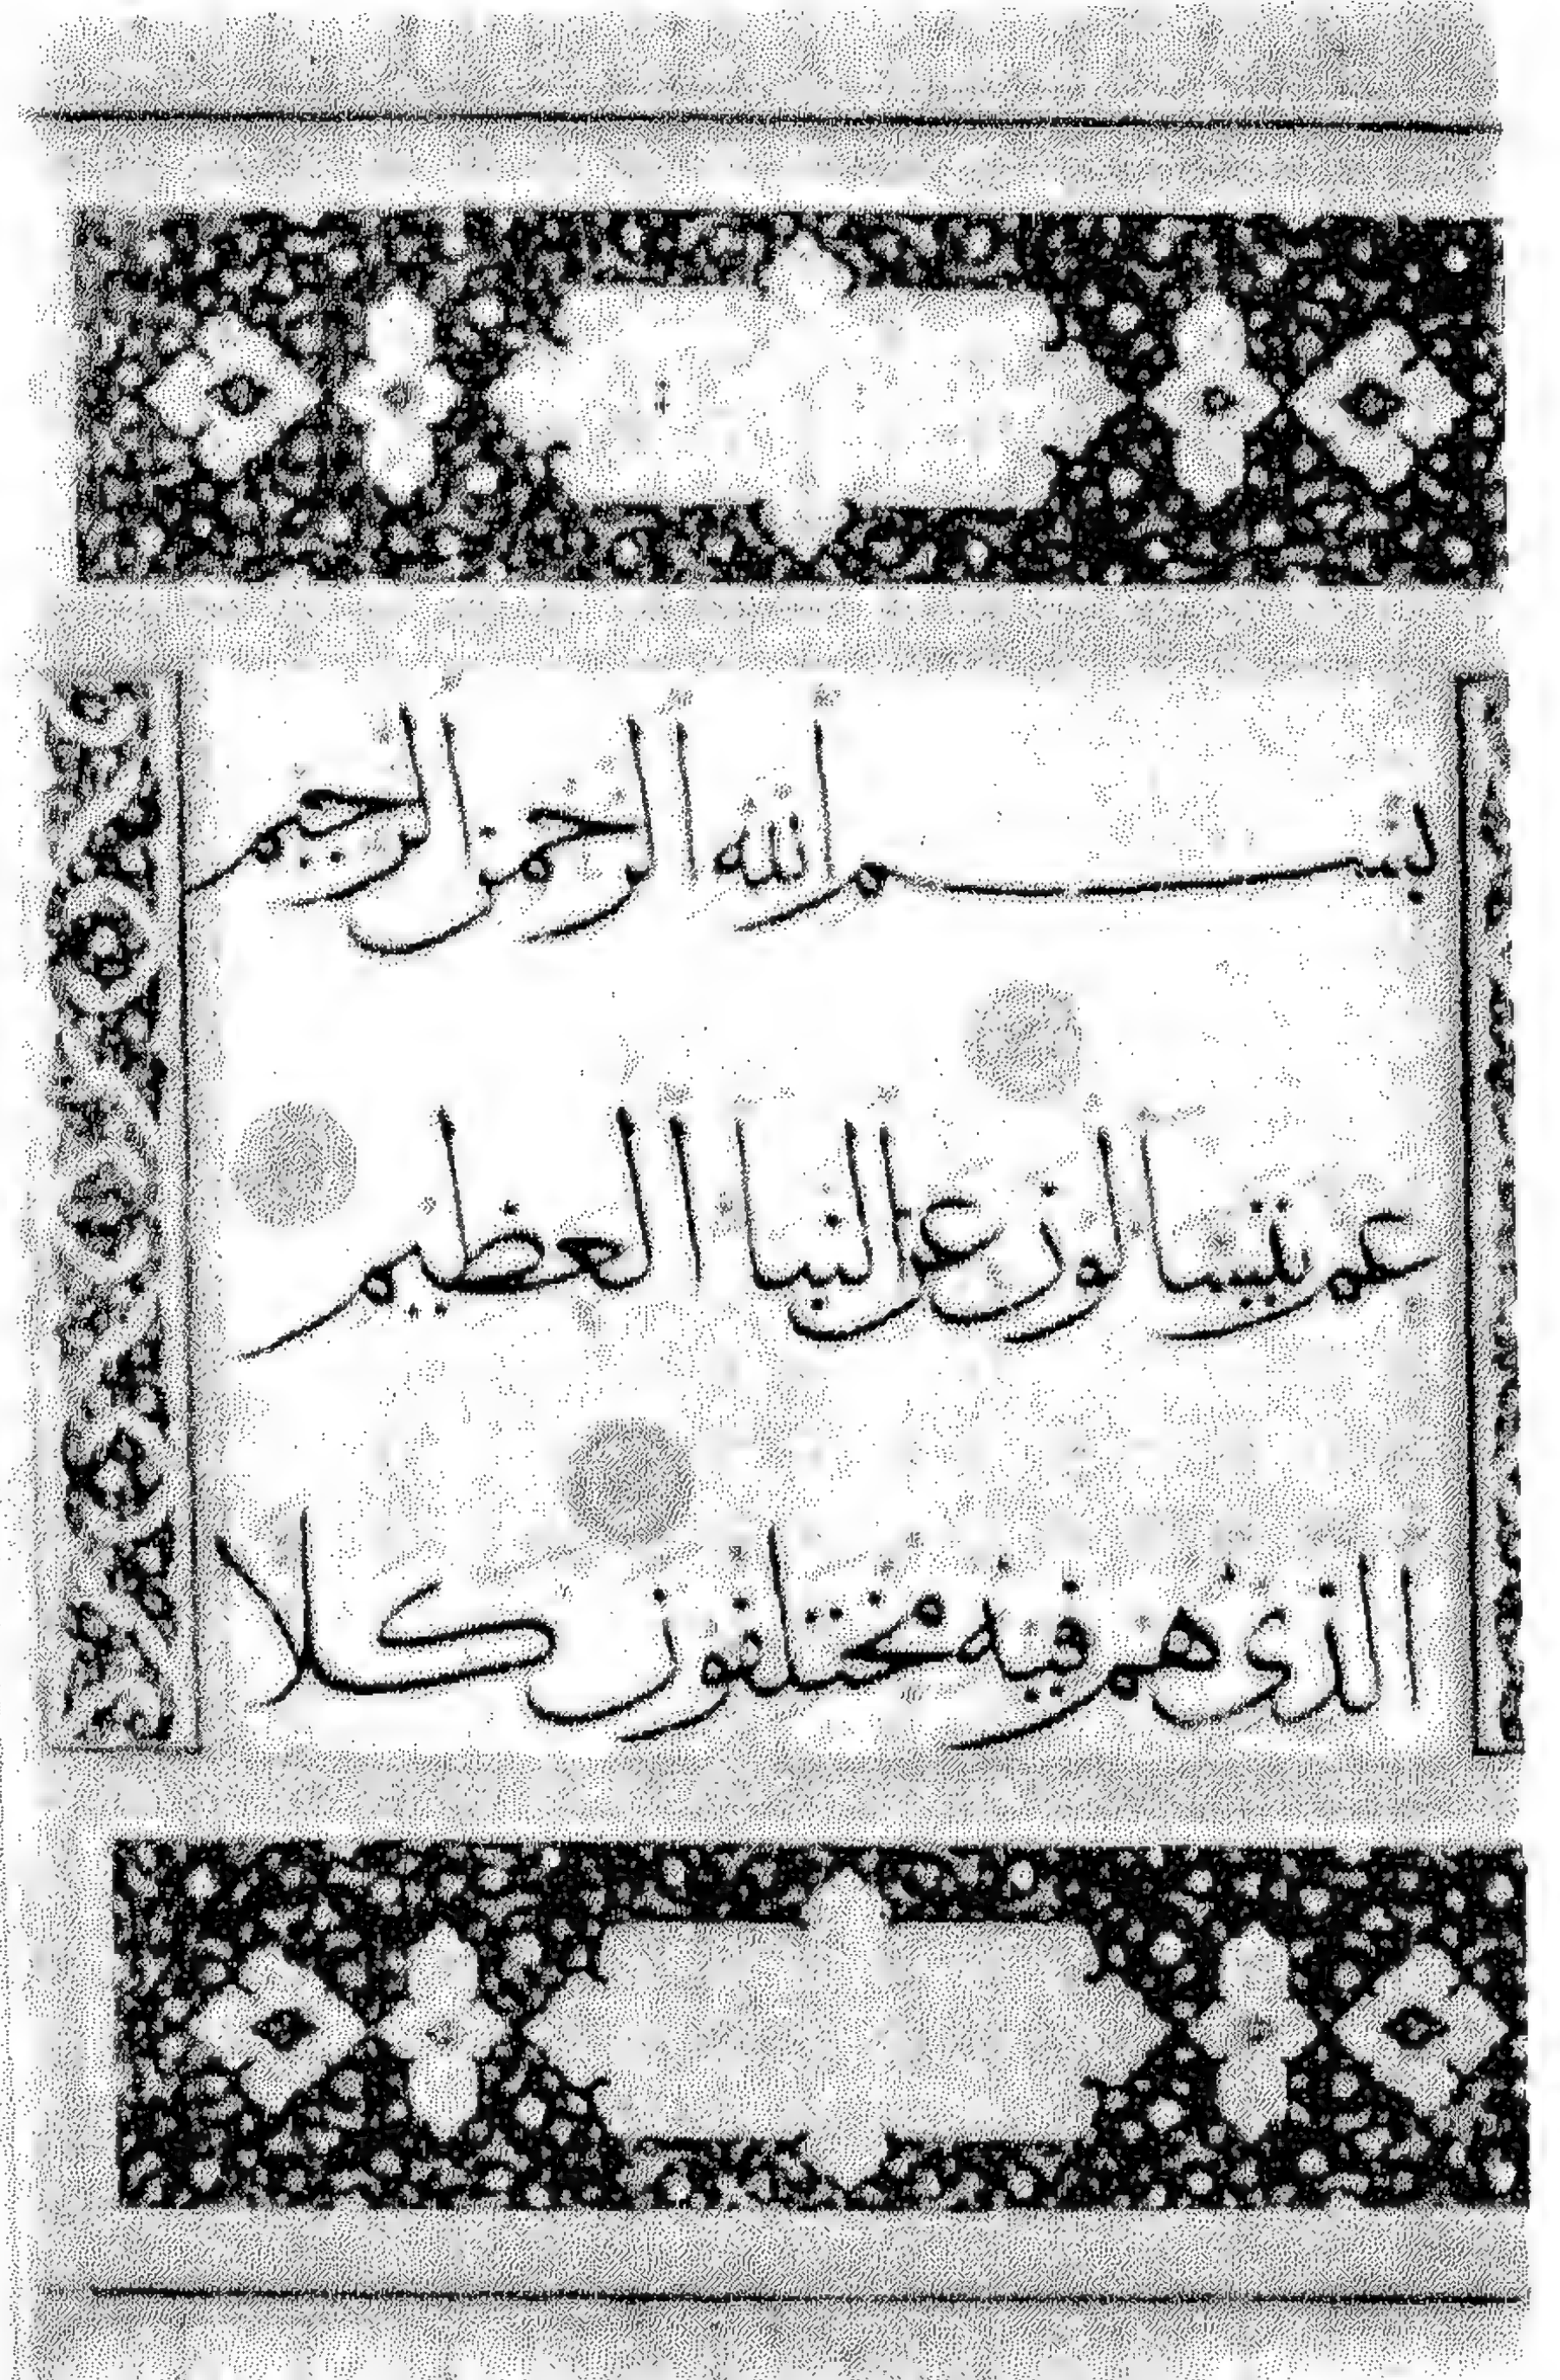 بسم الله الرحمن الرحيم
عم يتساءلون عن النبا العظيم
الذى هم فيه مختلفون كلا